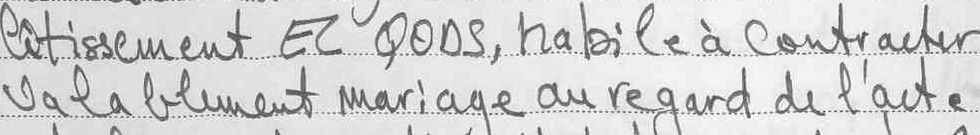 lotissement EL QODS, habile à contracter
valablement mariage au regard de l'acte